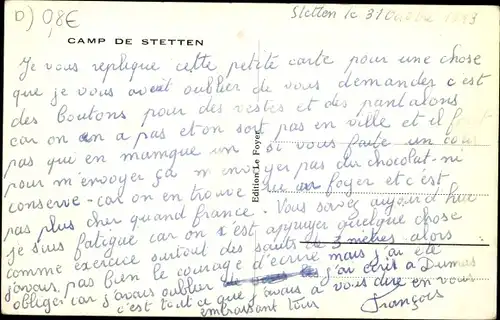 D) 0,8€
Stetten le 31 Octobre 1973
CAMP DE STETTEN
Je vous replique cette petite carte pour une chose
que je vous avait oublier de vous demander c'est
des boutons pour des vestes et des pantalons
car on en a pas et on sort pas en ville et il faut
pas qui en mamque un si vous faite un colis
pour m'envoyer ça m'envoyer pas du chocolat ni
conserve car on en trouve au foyer et c'est
pas plus cher quand france. Vous savez aujourd'hui
je suis fatigué car on s'est appuyer quelque chose
comme exercice surtout des sauts de 3 mètres alors
j'avais pas bien le courage d'écrire mais j'ai été
obliger car j'avais oublier j'ai écris a Dumas
c'est tout ce que j'avais a vous dire en vous
embrassant tous François
Edition Le Foyer